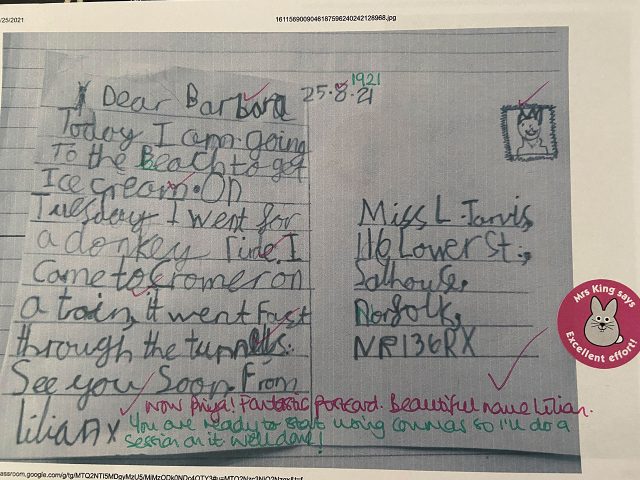 /25/2021
1611569009046187596240242128968.jpg
Dear Barbara
25.8.21
1921
Today I am going
To the Beach to get
Ice cream. On
Tuesday I went for
a donkey ride. I
Came to cromer on
a train, it went fast
through the tunnels.
See you Soon. From
Lilian x
Miss L. Jarvis,
116 Lower St.,
Salhouse,
Norfolk,
NR136RX
Mrs King says
Excellent effort!
Wow Priya! Fantastic postcard. Beautiful name Lilian.
You are ready to start using commas so I'll do a
session on it well done!